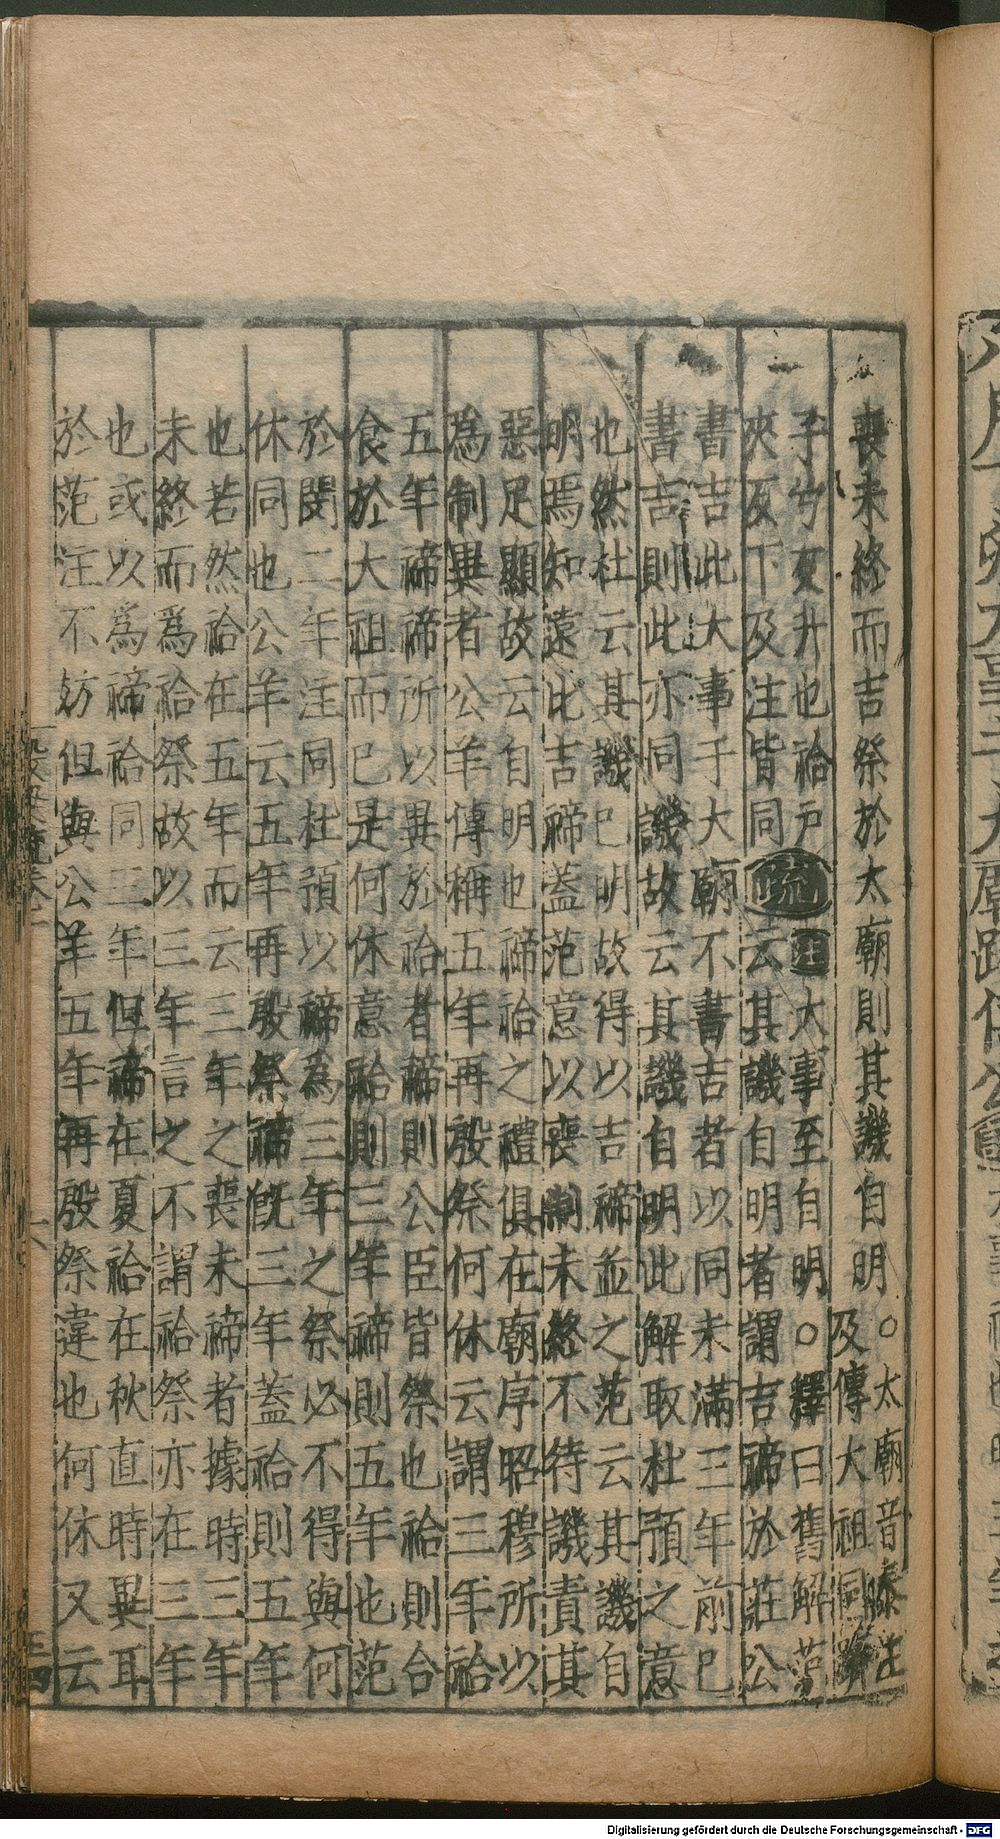 喪未終而吉祭於太廟則其譏自明○太廟音泰注
及傳大祖同
子兮女升也祫戶
夾反下及注皆同疏注大事至自明○釋曰舊解范
云其譏自明者謂吉禘於莊公
書吉此大事于大廟不書吉者以同未滿三年前已
書吉則此亦同譏故云其譏自明此解取杜預之意
也然杜云其譏已明故得以吉禘並之范云其譏自
明焉知遠比吉禘蓋范意以喪制未終不待譏責其
惡足顯故云自明也禘祫之禮俱在廟序昭穆所以
為制異者公羊傳稱五年再殷祭何休云謂三年祫
五年禘禘所以異於祫者禘則公臣皆祭也祫則合
食於大祖而已是何休意祫則三年禘則五年也范
於閔二年注同杜預以禘為三年之祭必不得與何
休同也公羊云五年再殷祭禘旣三年蓋祫則五年
也若然祫在五年而云三年之喪未禘者據時三年
未終而爲祫祭故以三年言之不謂祫祭亦在三年
也或以爲禘祫同三年但禘在夏祫在秋直時異耳
於范注不妨但與公羊五年再殷祭違也何休又云
Digitalisierung gefördert durch die Deutsche Forschungsgemeinschaft - DFG